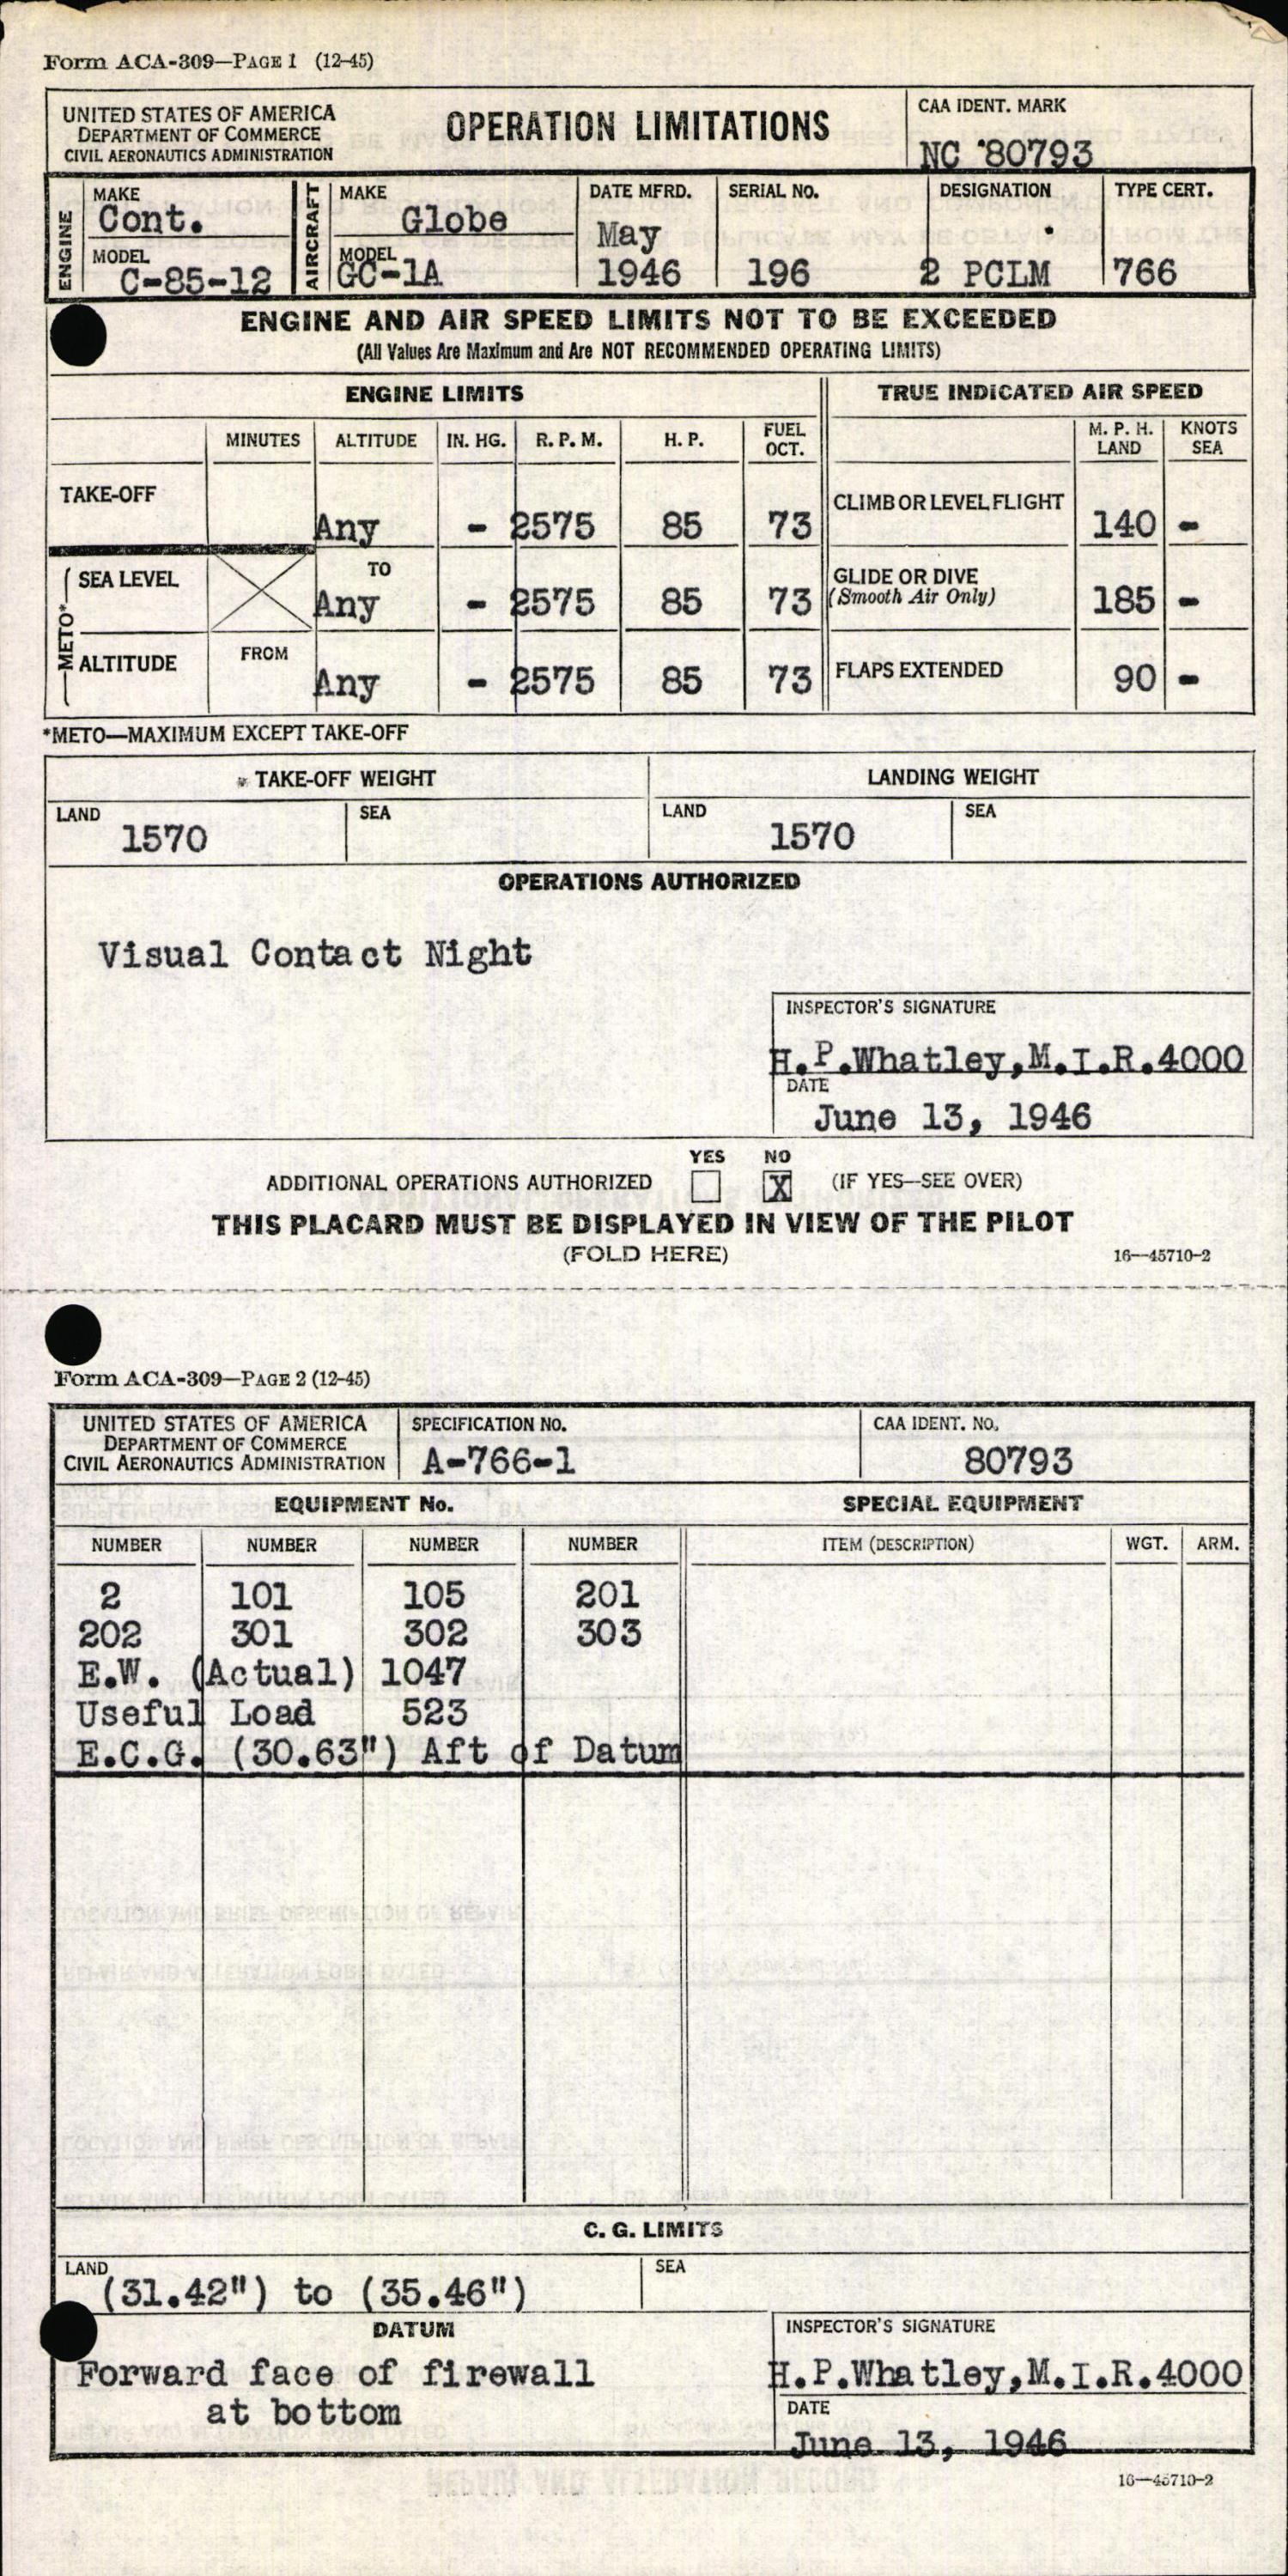 Form ACA-309—PAGE 1 (12-45)
UNITED STATES OF AMERICA
DEPARTMENT OF COMMERCE
CIVIL AERONAUTICS ADMINISTRATION
OPERATION LIMITATIONS
CAA IDENT. MARK
NC 80793
ENGINE
MAKE
Cont.
MODEL
C-85-12
AIRCRAFT
MAKE
Globe
MODEL
GC-1A
DATE MFRD.
May
1946
SERIAL NO.
196
DESIGNATION
2 PCLM
TYPE CERT.
766
ENGINE AND AIR SPEED LIMITS NOT TO BE EXCEEDED
(All Values Are Maximum and Are NOT RECOMMENDED OPERATING LIMITS)
ENGINE LIMITS TRUE INDICATED AIR SPEED
MINUTES ALTITUDE IN. HG. R. P. M. H. P. FUEL OCT. M. P. H. LAND KNOTS SEA
TAKE-OFF Any - 2575 85 73 CLIMB OR LEVEL FLIGHT 140 -
METO*
SEA LEVEL TO Any - 2575 85 73 GLIDE OR DIVE (Smooth Air Only) 185 -
ALTITUDE FROM Any - 2575 85 73 FLAPS EXTENDED 90 -
*METO—MAXIMUM EXCEPT TAKE-OFF
TAKE-OFF WEIGHT LANDING WEIGHT
LAND 1570 SEA LAND 1570 SEA
OPERATIONS AUTHORIZED
Visual Contact Night
INSPECTOR'S SIGNATURE
H.P.Whatley,M.I.R.4000
DATE
June 13, 1946
YES NO
ADDITIONAL OPERATIONS AUTHORIZED X (IF YES—SEE OVER)
THIS PLACARD MUST BE DISPLAYED IN VIEW OF THE PILOT
(FOLD HERE) 16—45710-2
Form ACA-309—PAGE 2 (12-45)
UNITED STATES OF AMERICA
DEPARTMENT OF COMMERCE
CIVIL AERONAUTICS ADMINISTRATION
SPECIFICATION NO.
A-766-1
CAA IDENT. NO.
80793
EQUIPMENT No. SPECIAL EQUIPMENT
NUMBER NUMBER NUMBER NUMBER ITEM (DESCRIPTION) WGT. ARM.
2 101 105 201
202 301 302 303
E.W. (Actual) 1047
Useful Load 523
E.C.G. (30.63") Aft of Datum
C. G. LIMITS
LAND (31.42") to (35.46") SEA
DATUM
Forward face of firewall
at bottom
INSPECTOR'S SIGNATURE
H.P.Whatley,M.I.R.4000
DATE
June 13, 1946
16—45710-2